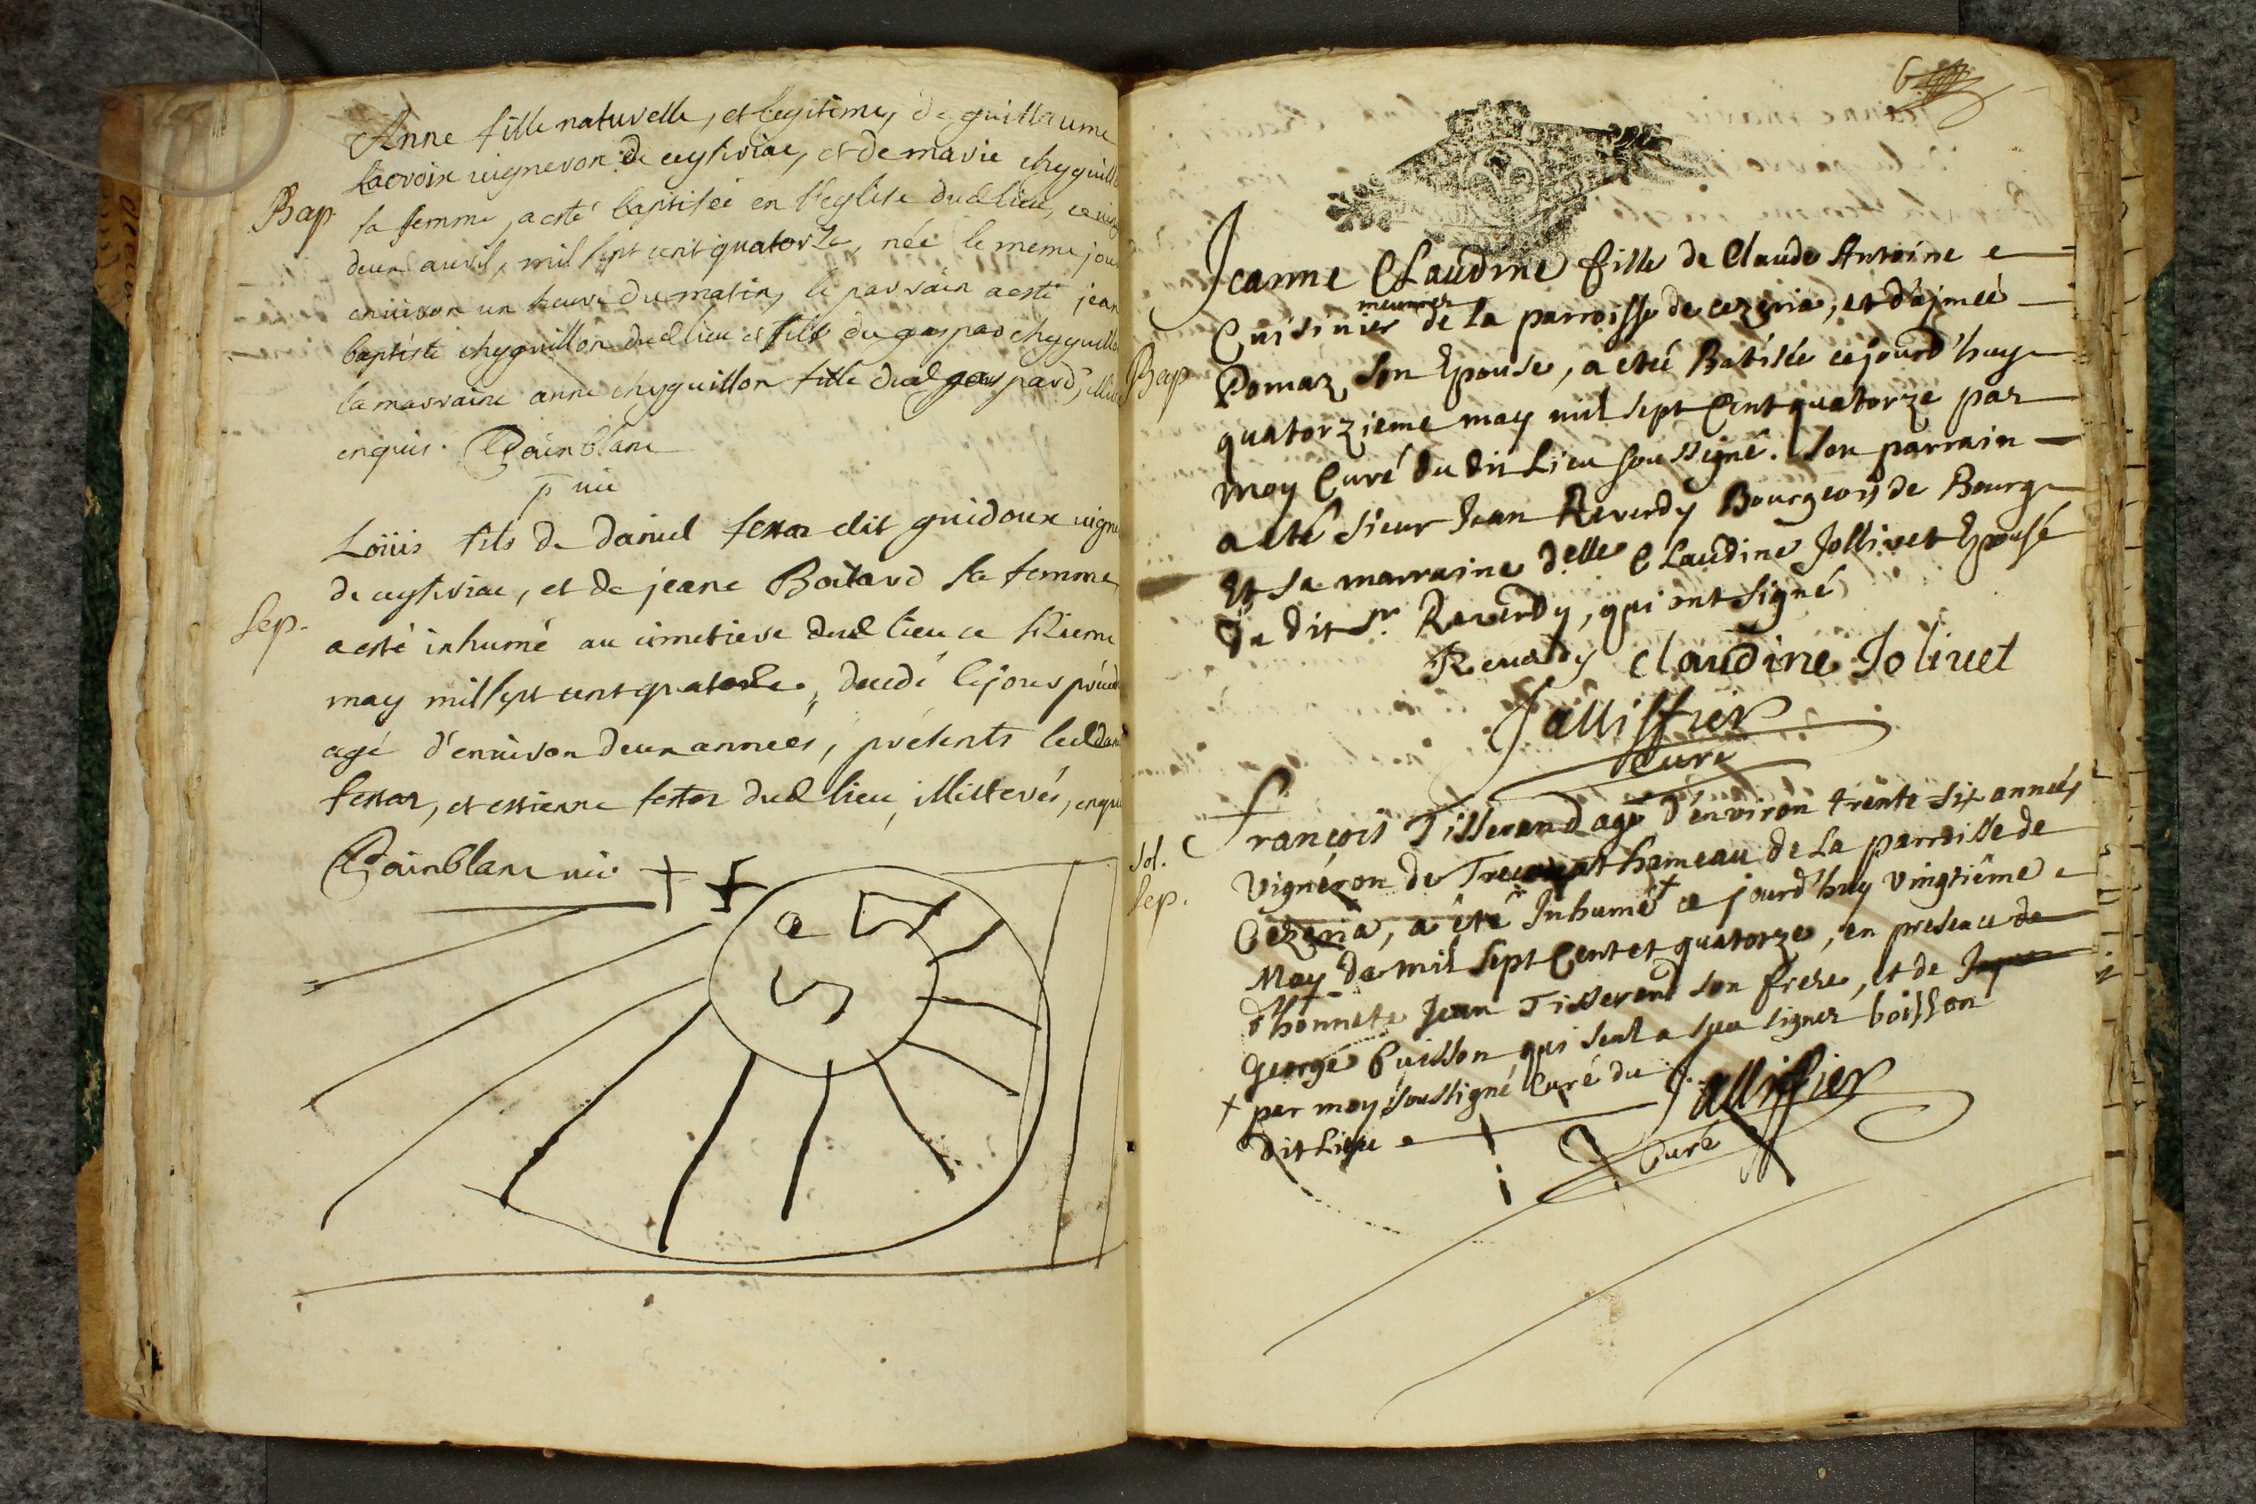 Anne fille naturelle, et legitime, de guillaume
Lacroix uigneron de ceyseriac, et de marie chyguill
Bap
sa femme, a esté baptisée en l'eglise dud lieu, ce
deux auril, mil sept cent quatorze, née le meme jou
enuiron un heure du matin, le parrain a esté jean
baptiste chyguillon dud lieu et fils du gaspar chyguill
la marraine anne chyguillon fille dud gaspard,
enquis. Painblanc
uic
Loüis fils de daniel dit guidoux uigne
de ceyseriac, et de jeane Boitard sa femme
Sep.
a esté inhumé au cimetiere dud lieu ce sizieme
may mil sept cent quatorze, decedé le jour préced
agé d'enuiron deux années, présents led dan
et estienne dud lieu, illitterés, enqui
Painblanc uic
6
Jeanne Claudine fille de Claude Antoine
meunier
Cuisinier de la parroisse de cezeria, et d'ajmeé
Bap
Pomaz son Epouse, a eteé Batisée cejourd'huy
quatorzieme may mil sept Cent quatorze par
moy Curé du dit Lieu soussigné. son parrain
a eté sieur Jean Reverdy Bourgeois de Bourg
Et sa marraine delle Claudine Jollivet Epouse
du dit sr. Reverdy, qui ont signé
Reuerdy Claudine Joliuet
Jallissier
Curé
François Tisserand agé d'environ trente six anneés
Sol.
Vigneron de Treconat hameau de La parroisse de
Sep.
Cezeria, a été Inhumé + ce jourd'huy vingtiême
May de mil sept Cent et quatorze, en presence de
d'honnete Jean Tisserand son frere, et de
George Buisson qui seul a sçeu signer boisson
+ par moy soussigné Curé du Jallissier
dit Lieu
Curé